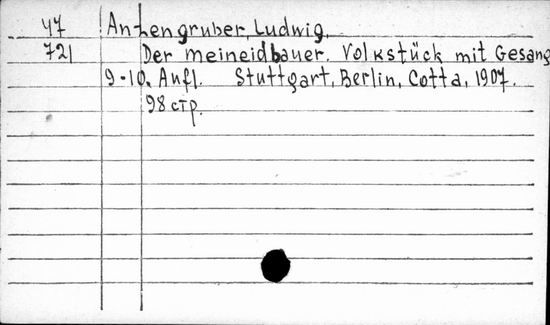 47 Anzengruber, Ludwig.
721 Der Meineidbauer. Volkstück mit Gesang
9-10. Aufl. Stuttgart, Berlin, Cotta, 1907.
98 стр.